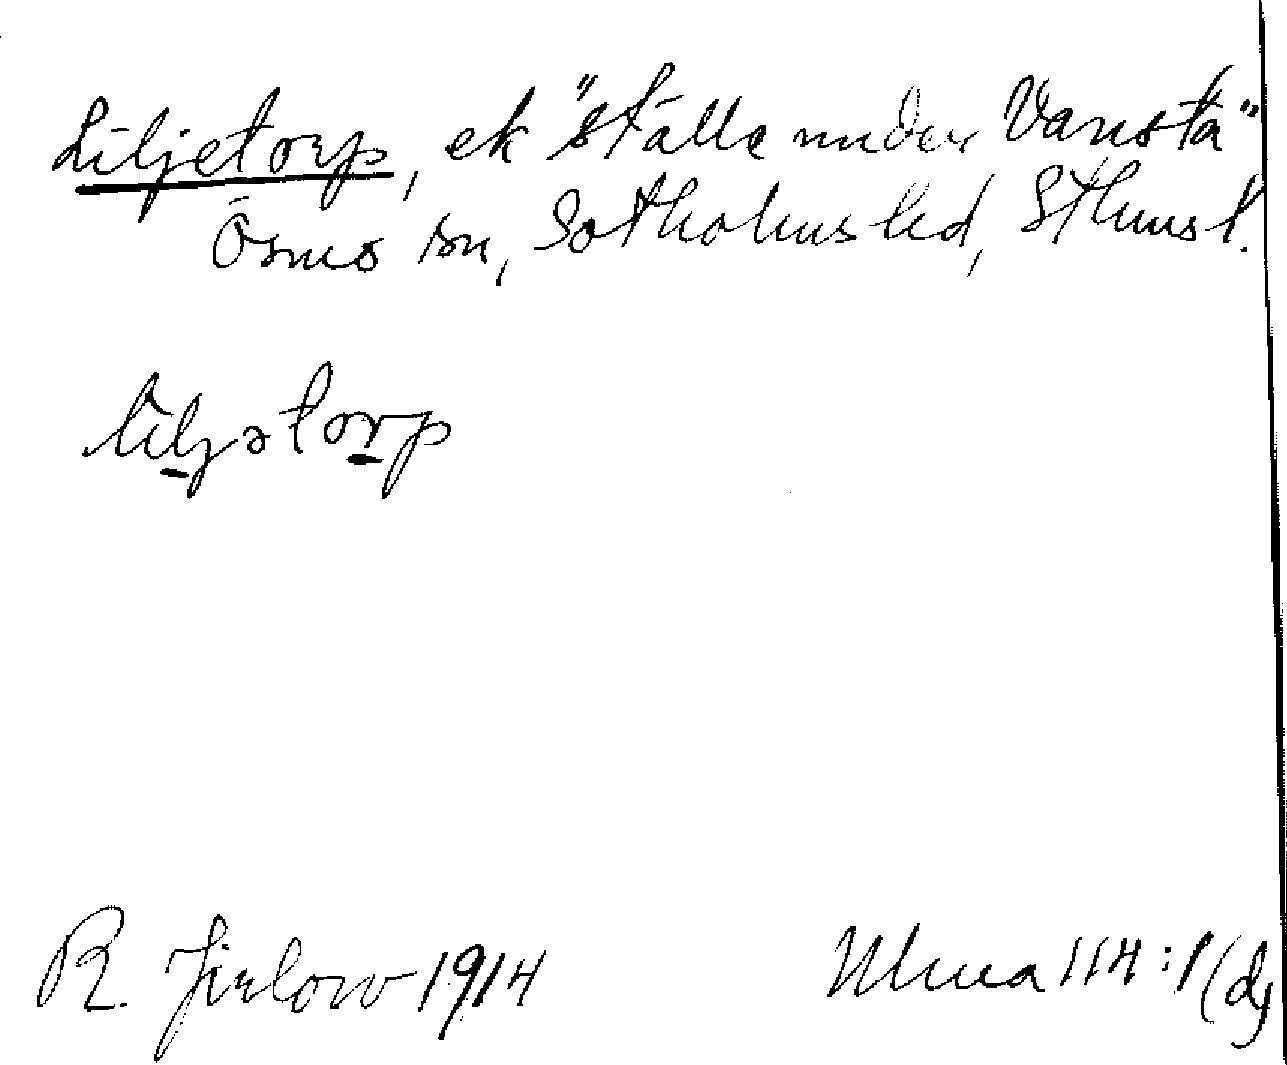 Liljetorp, ek "ställe under Vansta"
Ösmo sn, Sotholms hd, Sthms l.
liljətorp
R. Jirlow 1914
Ulma 114:1(d)